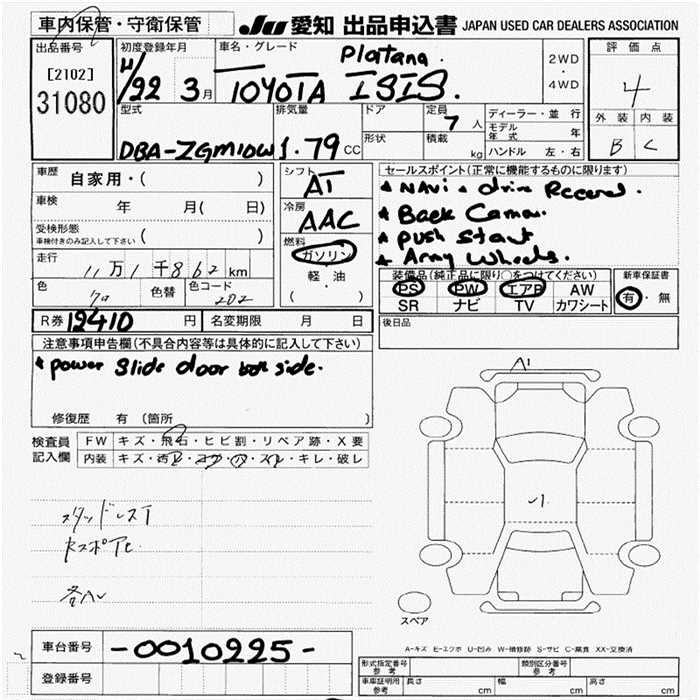 車内保管・守衛保管
JU 愛知 出品申込書 JAPAN USED CAR DEALERS ASSOCIATION
出品番号 初度登録年月 車名・グレード Platana. 2WD ・ 4WD 評価点
[2102]
31080
/22 3月 TOYOTA ISIS. 4
型式 排気量 ドア 定員 7人 ディーラー・並行 外装 内装
形状 積載 kg モデル年式 年 B C
DBA-ZGM10W 1.79cc ハンドル 左・右
車歴 自家用・( ) シフト AT セールスポイント(正常に機能するものに限ります)
車検 年 月( 日) 冷房 AAC
受検形態
車検付きのみ記入して下さい ( ) 燃料 ガソリン
軽・油
( )
Back
Push Start
走行 11万1千862km
色 色替 色コード 202
装備品(純正品に限り○をつけてください) 新車保証書
PS PW エアB AW 有・無
SR ナビ TV カワシート
R券 12410円 名変期限 月 日 後日品
注意事項申告欄(不具合内容等は具体的に記入して下さい)
* power slide door both side.
修復歴 有 (箇所 )
検査員記入欄 FW キズ・飛石・ヒビ割・リペア跡・X要
内装 キズ・汚レ・コゲ・穴・スレ・キレ・破レ
A1
スペア
A-キズ E-エクボ U-凹み W-補修跡 S-サビ C-腐食 XX-交換済
車台番号 -0010225-
登録番号
形式指定番号 参考 類別区分番号 参考
車庫証明用 参考 長さ cm 幅 cm 高さ cm